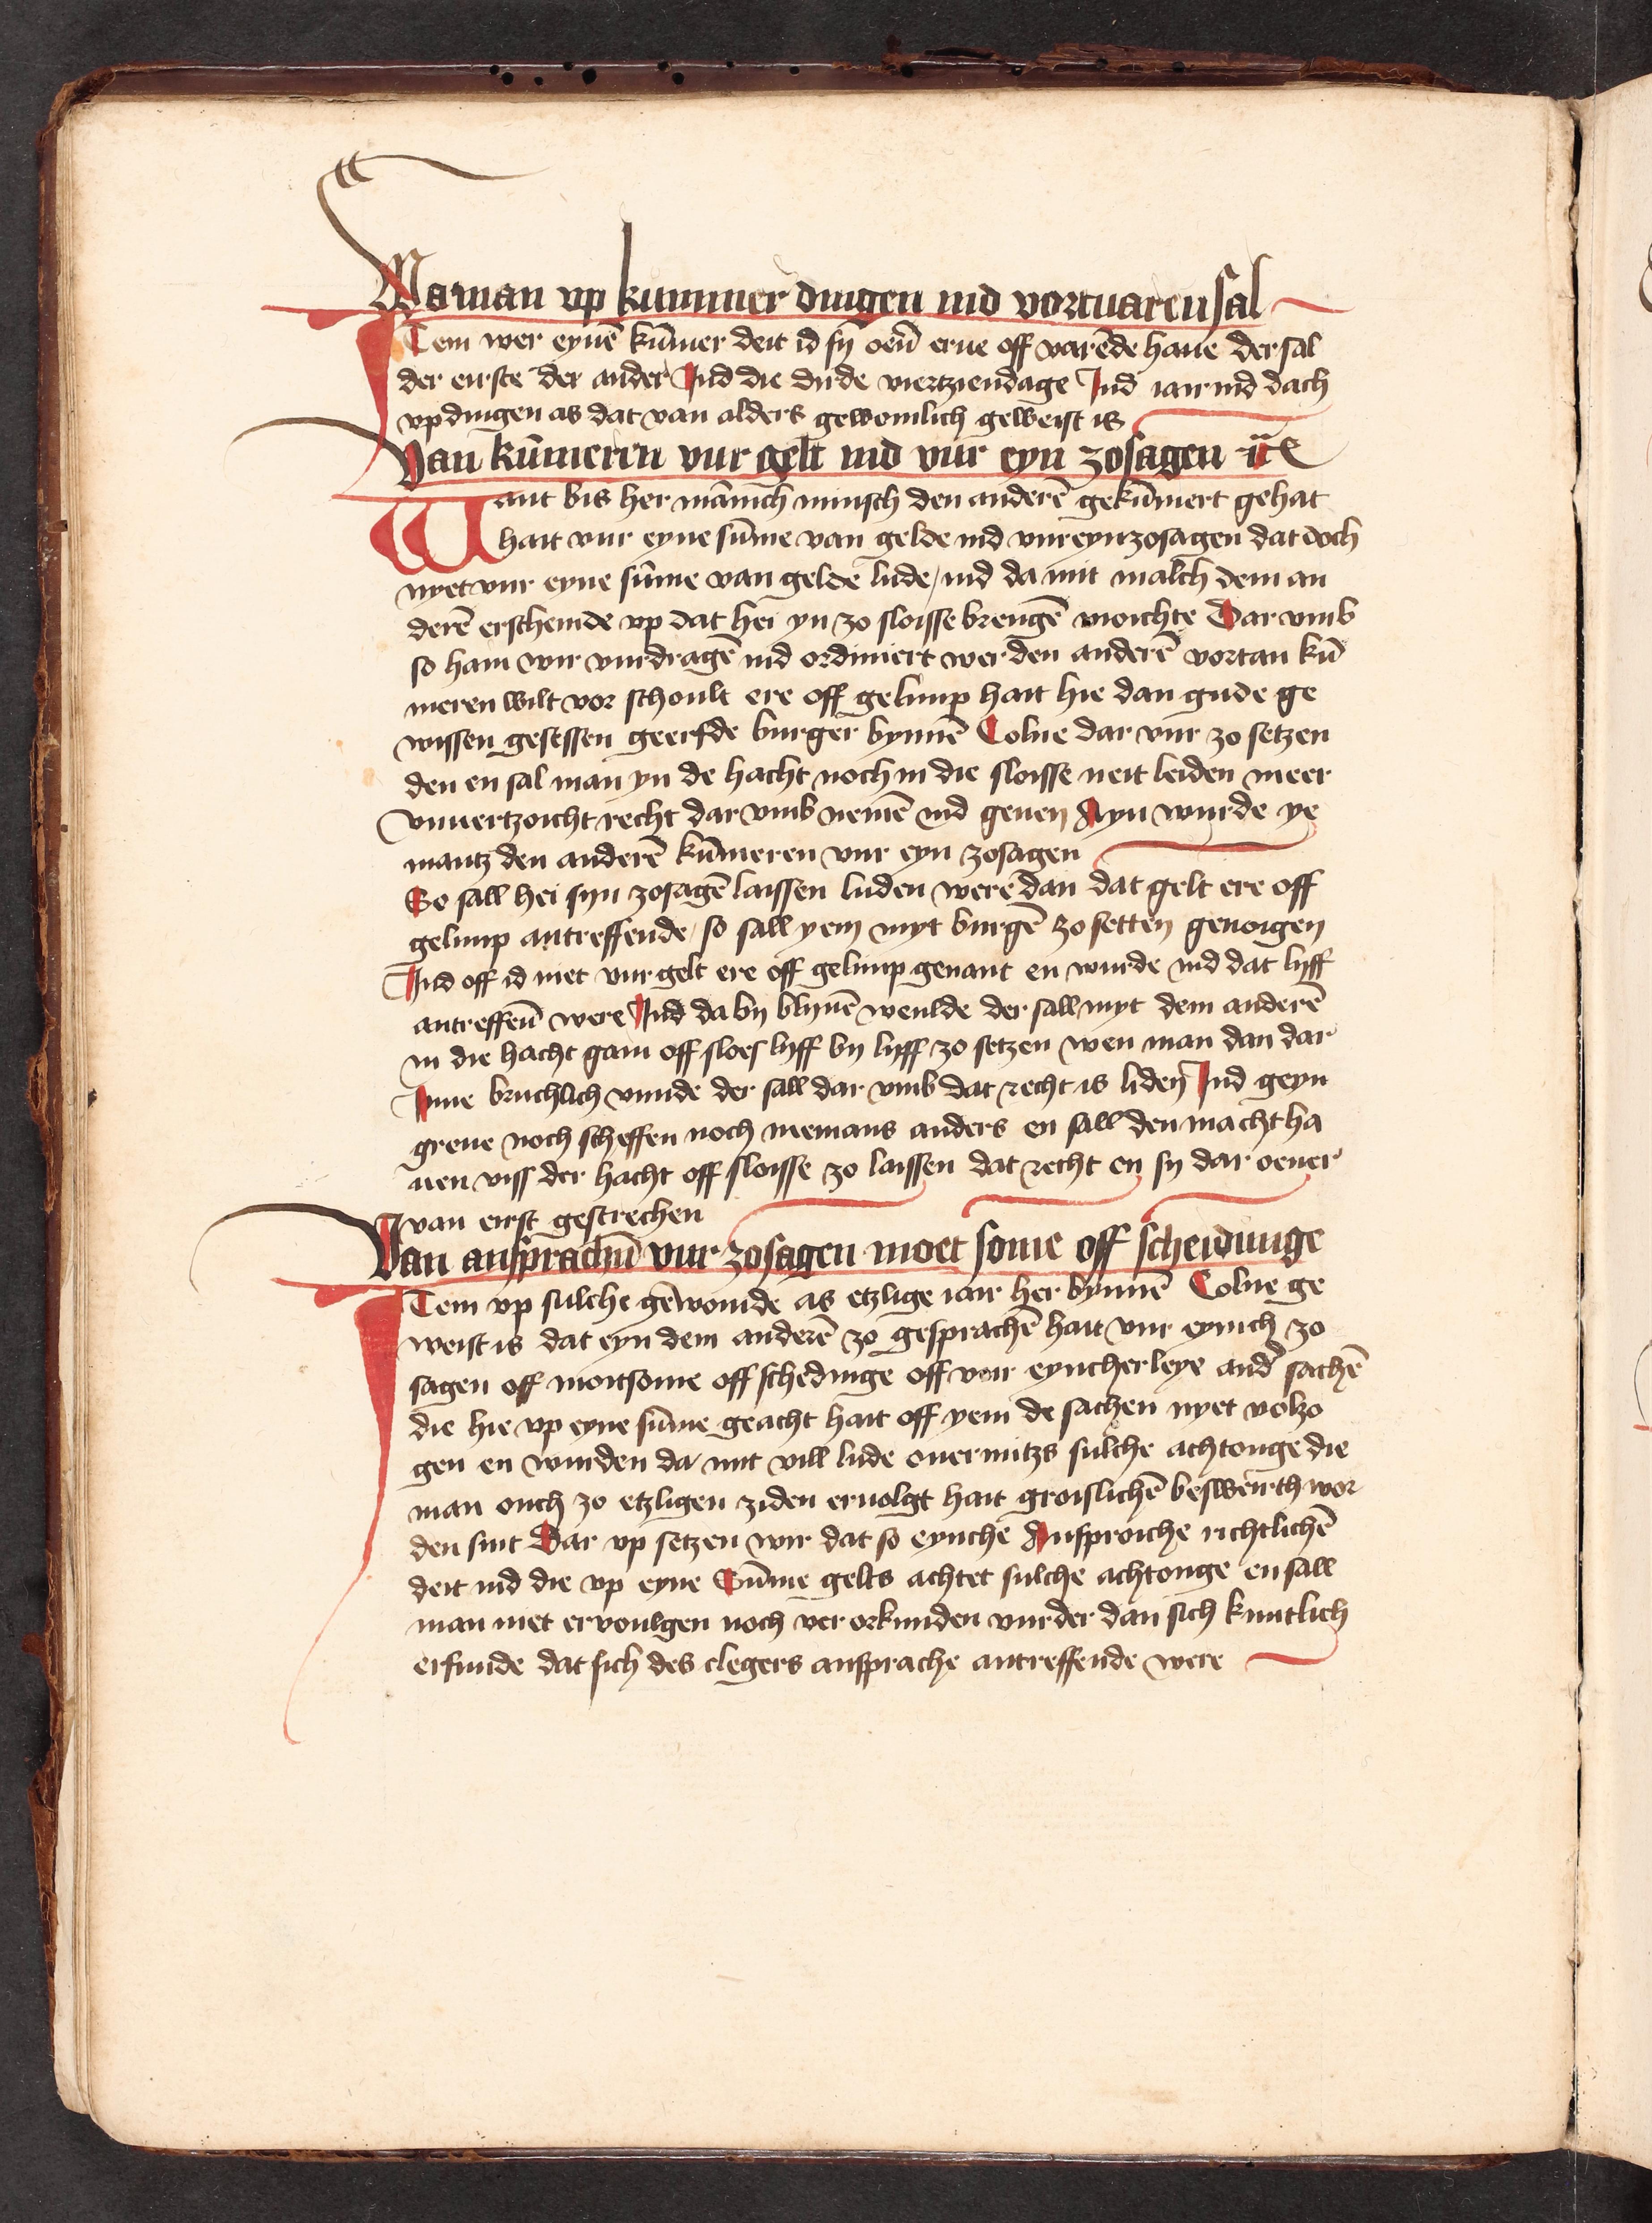 Wa man vp kummer dingen ind vortuaren sal
Item wer eynē kūmer deit id sÿ oeū erue off varēde haue der sal
der eirste der ander Ind die dirde viertziendage Ind iair ind dach
vpdingen as dat van alders gewoinlich geweist is
Van kūmeren vur gelt ind vur eyn zosagen ꝛc̄
Want bis her mānich minsch den anderē gekūmert gehat
hait vur eyne sūme van gelde ind vur eyn zosagen dat doch
nyet vur eyne sūme van gelde lude / ind da mit malch dem an
derē erscheinde vp dat hei yn zo sloisse brengē moichte Dar vmb
so hain wir vurdragē ind ordiniert wer den anderē vortan kū
meren wilt vor schoult ere off gelimp hait hie dan gude ge
wissen gesessen geerfde burger bynnē Colne dar vur zo setzen
den en sal man yn de hacht noch in die sloisse neit leiden meer
vnuertzoicht recht dar vmb nemē ind geuen Ayn wurde ye
mantz den anderē kūmeren vur eyn zosagen
So sall hei syn zosagē laissen luden were dan dat gelt ere off
gelimp antreffende / so sall yem myt burgē zo setten genoigen
Ind off id niet vur gelt ere off gelimp genant en wurde ind dat lyff
antreffeū were Ind da by blyuē weulde der sall myt dem anderē
in die hacht gain off sloes lyff by lyff zo setzen wen man dan dar
Inne bruchlich vunde der sall dar vmb dat recht is liden Ind geyn
greue noch scheffen noch niemans anders en sall den macht ha
uen viss der hacht off sloisse zo laissen dat recht en sy dar oeuer
van eirst gestrechen
Van ansprachū vur zosagen moet some off scheidunge
Item vp sulche gēwoinde as etzlige iair her bynnē Colne ge
weist is dat eyn dem anderē zo gesprachē hait vur eynich zo
sagen off moitsome off schedinge off vur eyncherleye and̛ sachē
die hie vp eyne sūme geacht hait off yem de sachen nyet volzo
gen en wurden da mit vill lude ouermitzs sulche achtonge die
man ouch zo etzligen ziden eruolgt hait groislichē besweirth wor
den sint Dar vp setzen wir dat so eynche Ansproiche richtlichē
deit ind die vp eyne Sūme gelts achtet sulche achtonge en sall
man niet ervoulgen noch ver orkunden vurder dan sich kuntlich
erfunde dat sich des clegers ansprache antreffende were